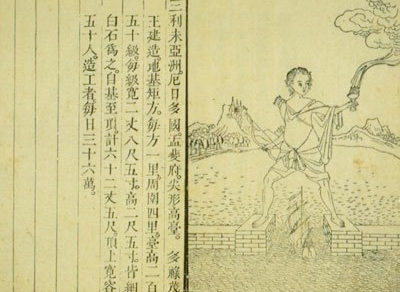 三利未亞洲厄日多國孟斐府尖形高臺。多祿茂
王建造地基矩方。每方一里。周圍四里。臺高二百
五十級。每級寬二丈八尺五寸。高二尺五寸。皆細
白石爲之。自基至頂。計六十二丈五尺。頂上寬容
五十人。造工者每日三十六萬。